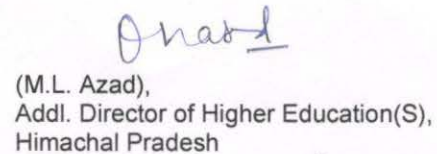 (M.L. Azad),
Addl. Director of Higher Education(S),
Himachal Pradesh